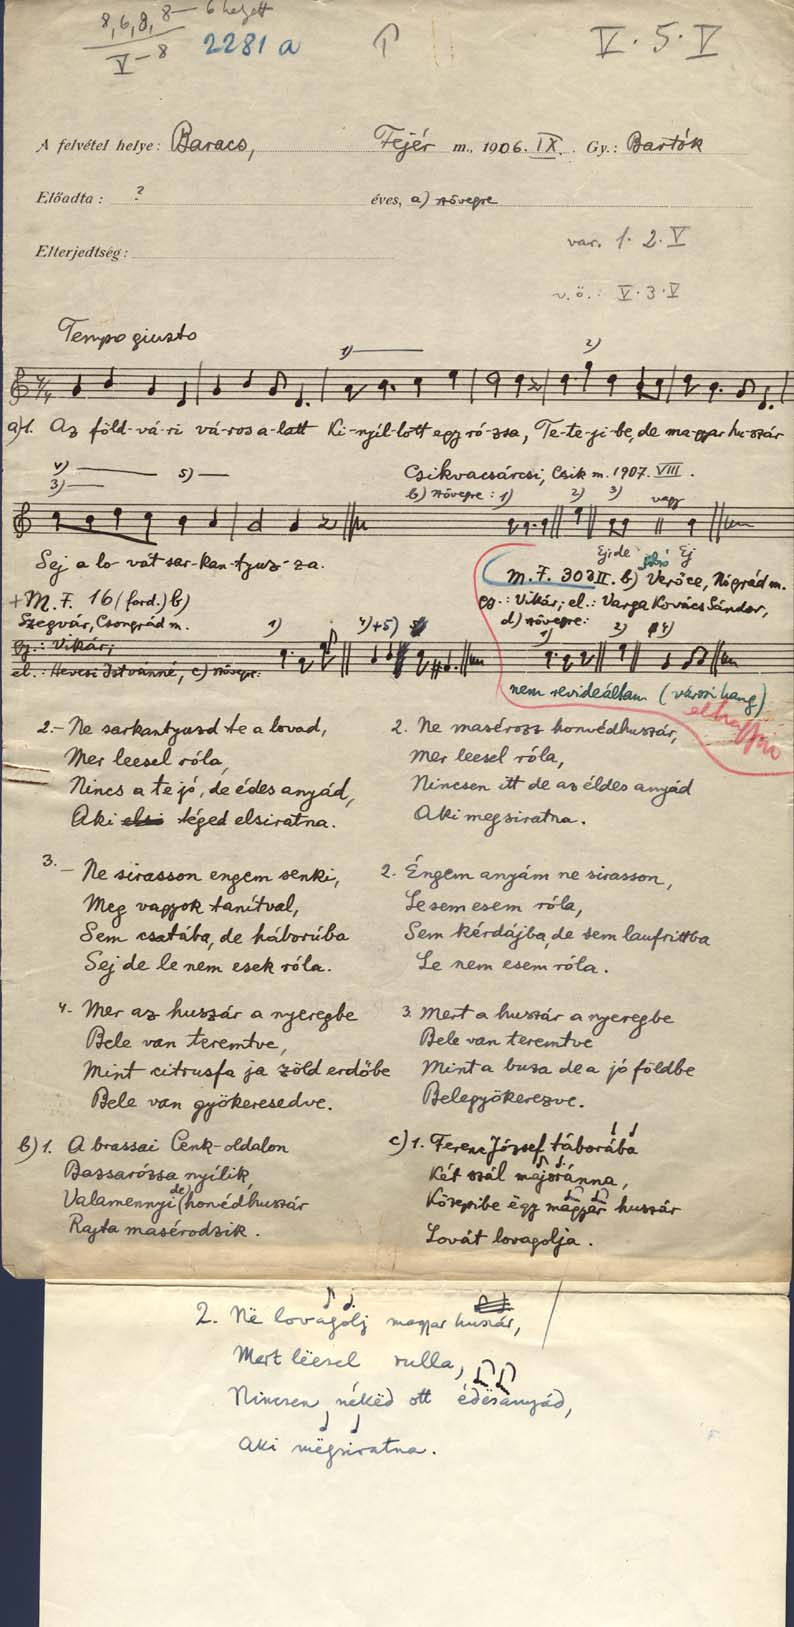 8, 6, 8, 8 — 6 helyett
V — 8
2281 a
V. 5. V
A felvétel helye: Baracs, Fejér m., 1906. IX. Gy.: Bartók
Előadta: ? éves, a) szövegre
Elterjedtség:
var. 1. 2. V
v. ö.: V. 3. V
Tempo giusto
1) 2)
a) 1. Az föld-vá-ri vá-ros a-latt Ki-nyíl-lott egy ró-zsa, Te-te-ji-be, de ma-gyar hu-szár
4) 5)
3)
Csikvacsárcsi, Csik m. 1907. VIII.
b) szövegre: 1) 2) 3) vagy
Sej a lo-vát sar-kan-tyuz-za.
Ej, de Ej
M. F. 303 II. b) Verőce, Nógrád m.
gy.: Vikár; el.: Varga Kovács Sándor,
d) szövegre:
1) 2) 4)
+ M. F. 16 (ford.) b)
Szegvár, Csongrád m.
gy.: Vikár;
el.: Hevesi Istvánné, c) szövegr:
1) 4)+5)
nem revideáltam (városi hang)
elhagyni
2. – Ne sarkantyuzd te a lovad,
Mer leesel róla,
Nincs a te jó, de édes anyád,
Aki téged elsiratna.
3. – Ne sirasson engem senki,
Meg vagyok tanítval,
Sem csatába, de háborúba
Sej de le nem esek róla.
4. Mer az huszár a nyeregbe
Bele van teremtve,
Mint citrusfa ja zöld erdőbe
Bele van gyökeresedve.
b) 1. A brassai Cenk-oldalon
Bazsarózsa nyílik,
Valamennyi (de) honédhuszár
Rajta masérodzik.
2. Ne masérozz honvédhuszár,
Mer leesel róla,
Nincsen itt de az éldes anyád
Aki megsiratna.
2. Éngem anyám ne sirasson,
Le sem esem róla,
Sem kérdájba, de sem laufrittba
Le nem esem róla.
3. Mert a huszár a nyeregbe
Bele van teremtve
Mint a buza de a jó földbe
Belegyökerezve.
c) 1. Ferenc József táborába
Két szál majoránna,
Közepibe ëgy magyar huszár
Lovát lovagolja.
2. Në lovagolj magyar huszár,
Mert lëesel rulla,
Nincsen nékëd ott édësanyád,
Aki mëgsiratna.